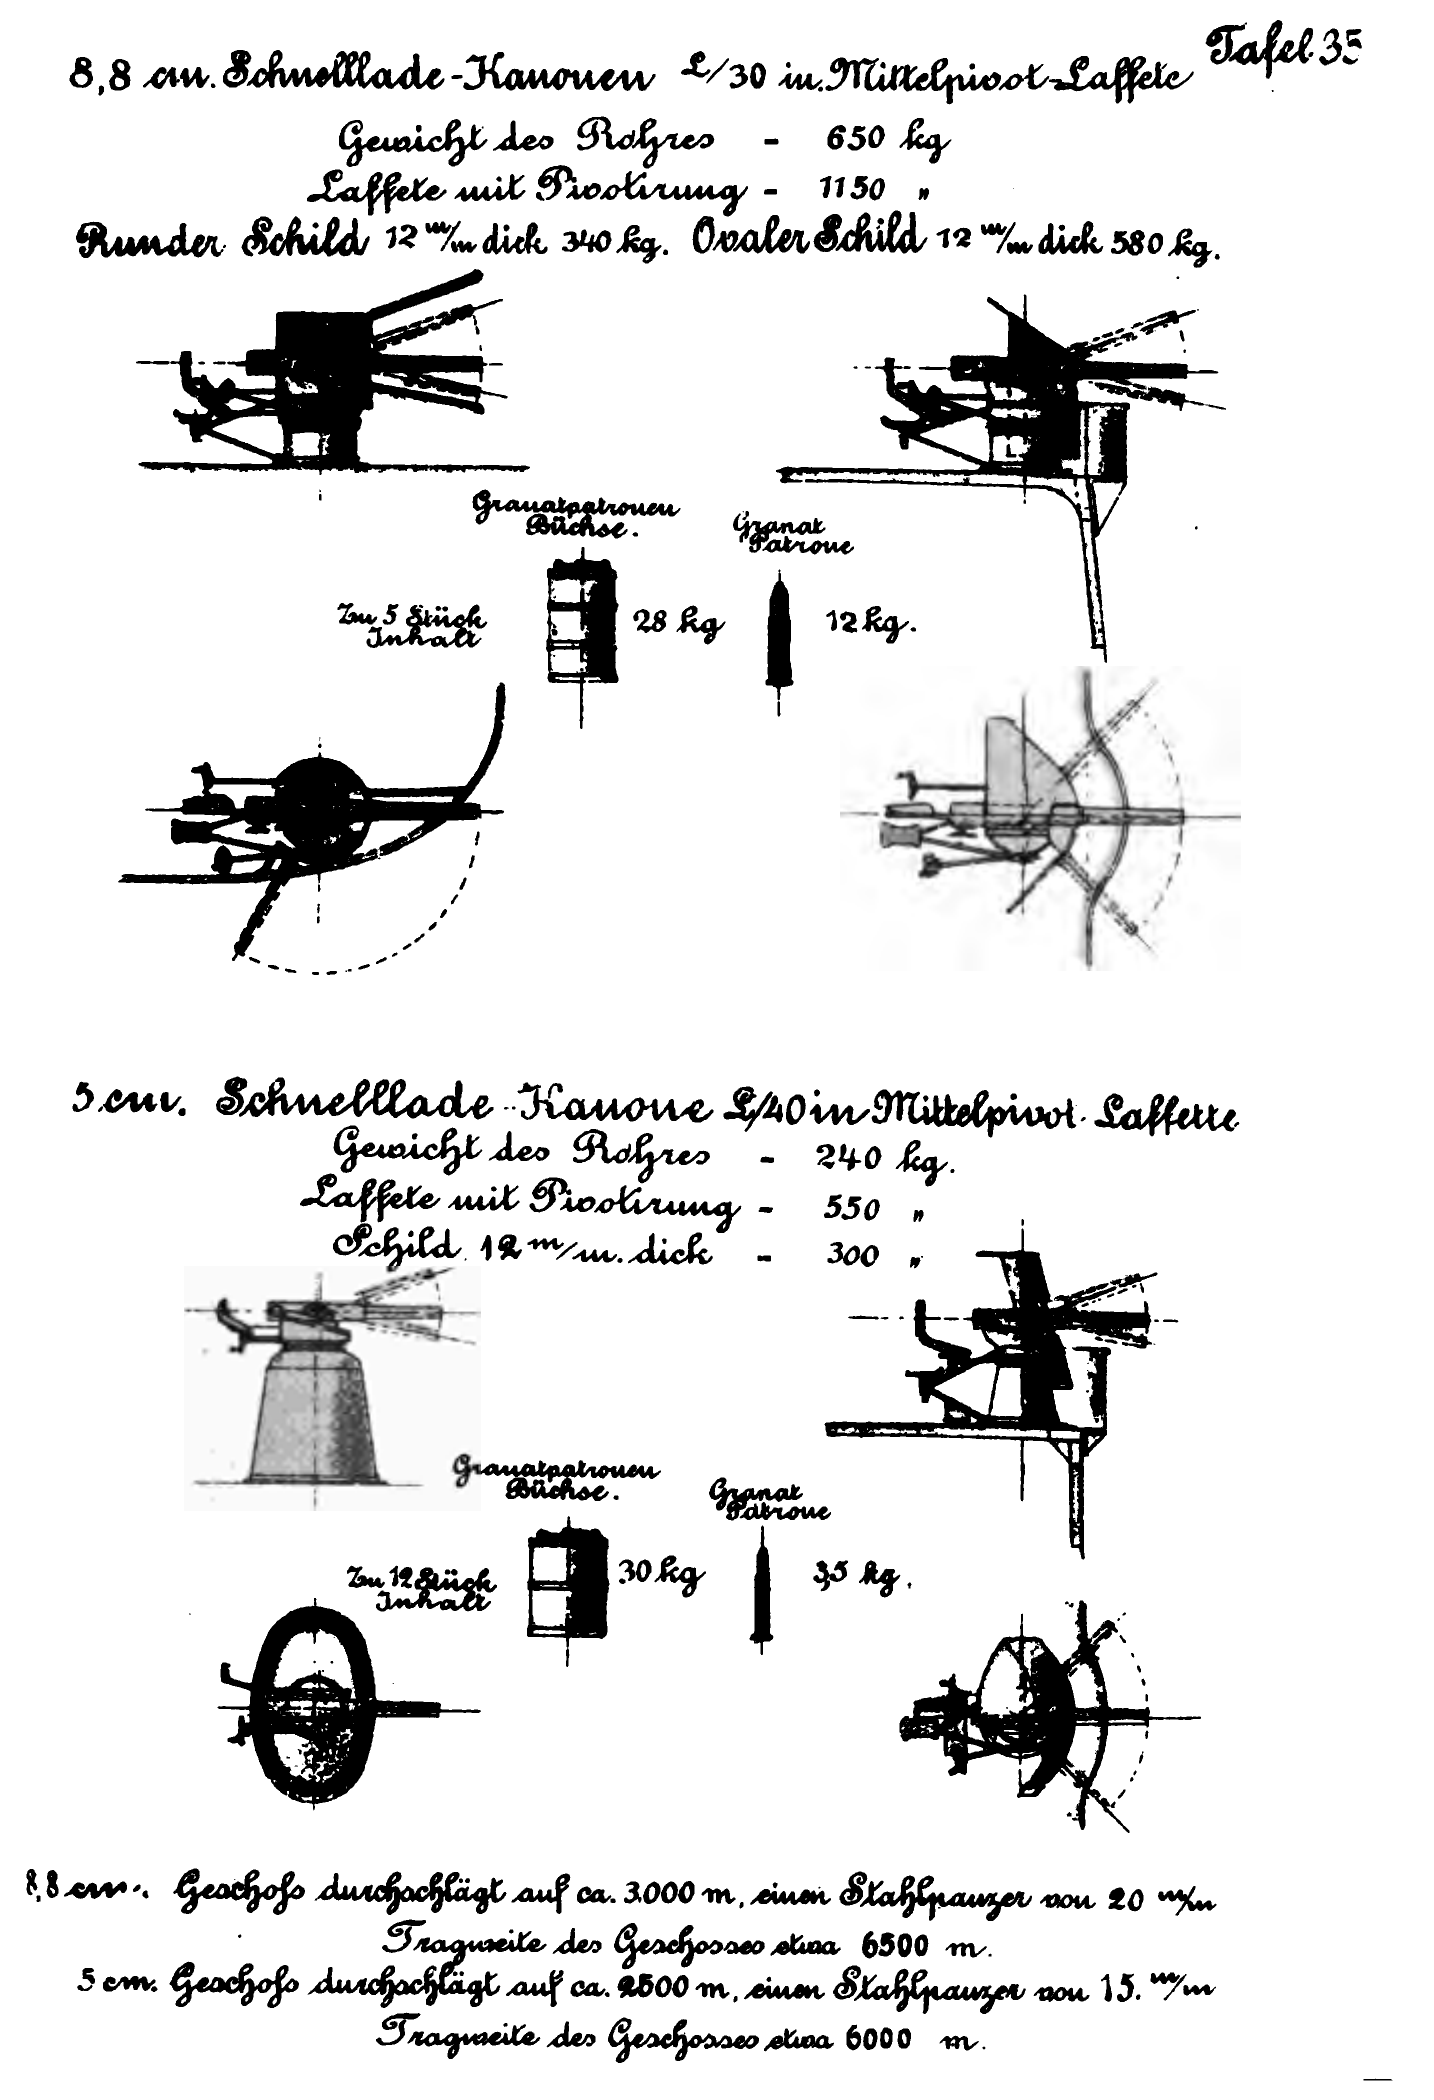 Tafel 35
8,8 cm. Schnelllade-Kanonen L/30 in. Mittelpivot-Laffete
Gewicht des Rohres - 650 kg
Laffete mit Pivotirung - 1150 "
Runder Schild 12 m/m dick 340 kg. Ovaler Schild 12 m/m dick 580 kg.
Granatpatronen
Büchse.
Granat
Patrone
Zu 5 Stück
Inhalt
28 kg
12 kg.
5 cm. Schnelllade-Kanone L/40 in Mittelpivot-Laffette
Gewicht des Rohres - 240 kg.
Laffete mit Pivotirung - 550 "
Schild 12 m/m. dick - 300 "
Granatpatronen
Büchse.
Granat
Patrone
Zu 12 Stück
Inhalt
30 kg
3,5 kg.
8,8 cm. Geschoß durchschlägt auf ca. 3.000 m, einen Stahlpanzer von 20 m/m
Tragweite des Geschosses etwa 6500 m.
5 cm. Geschoß durchschlägt auf ca. 2500 m, einen Stahlpanzer von 15. m/m
Tragweite des Geschosses etwa 6000 m.